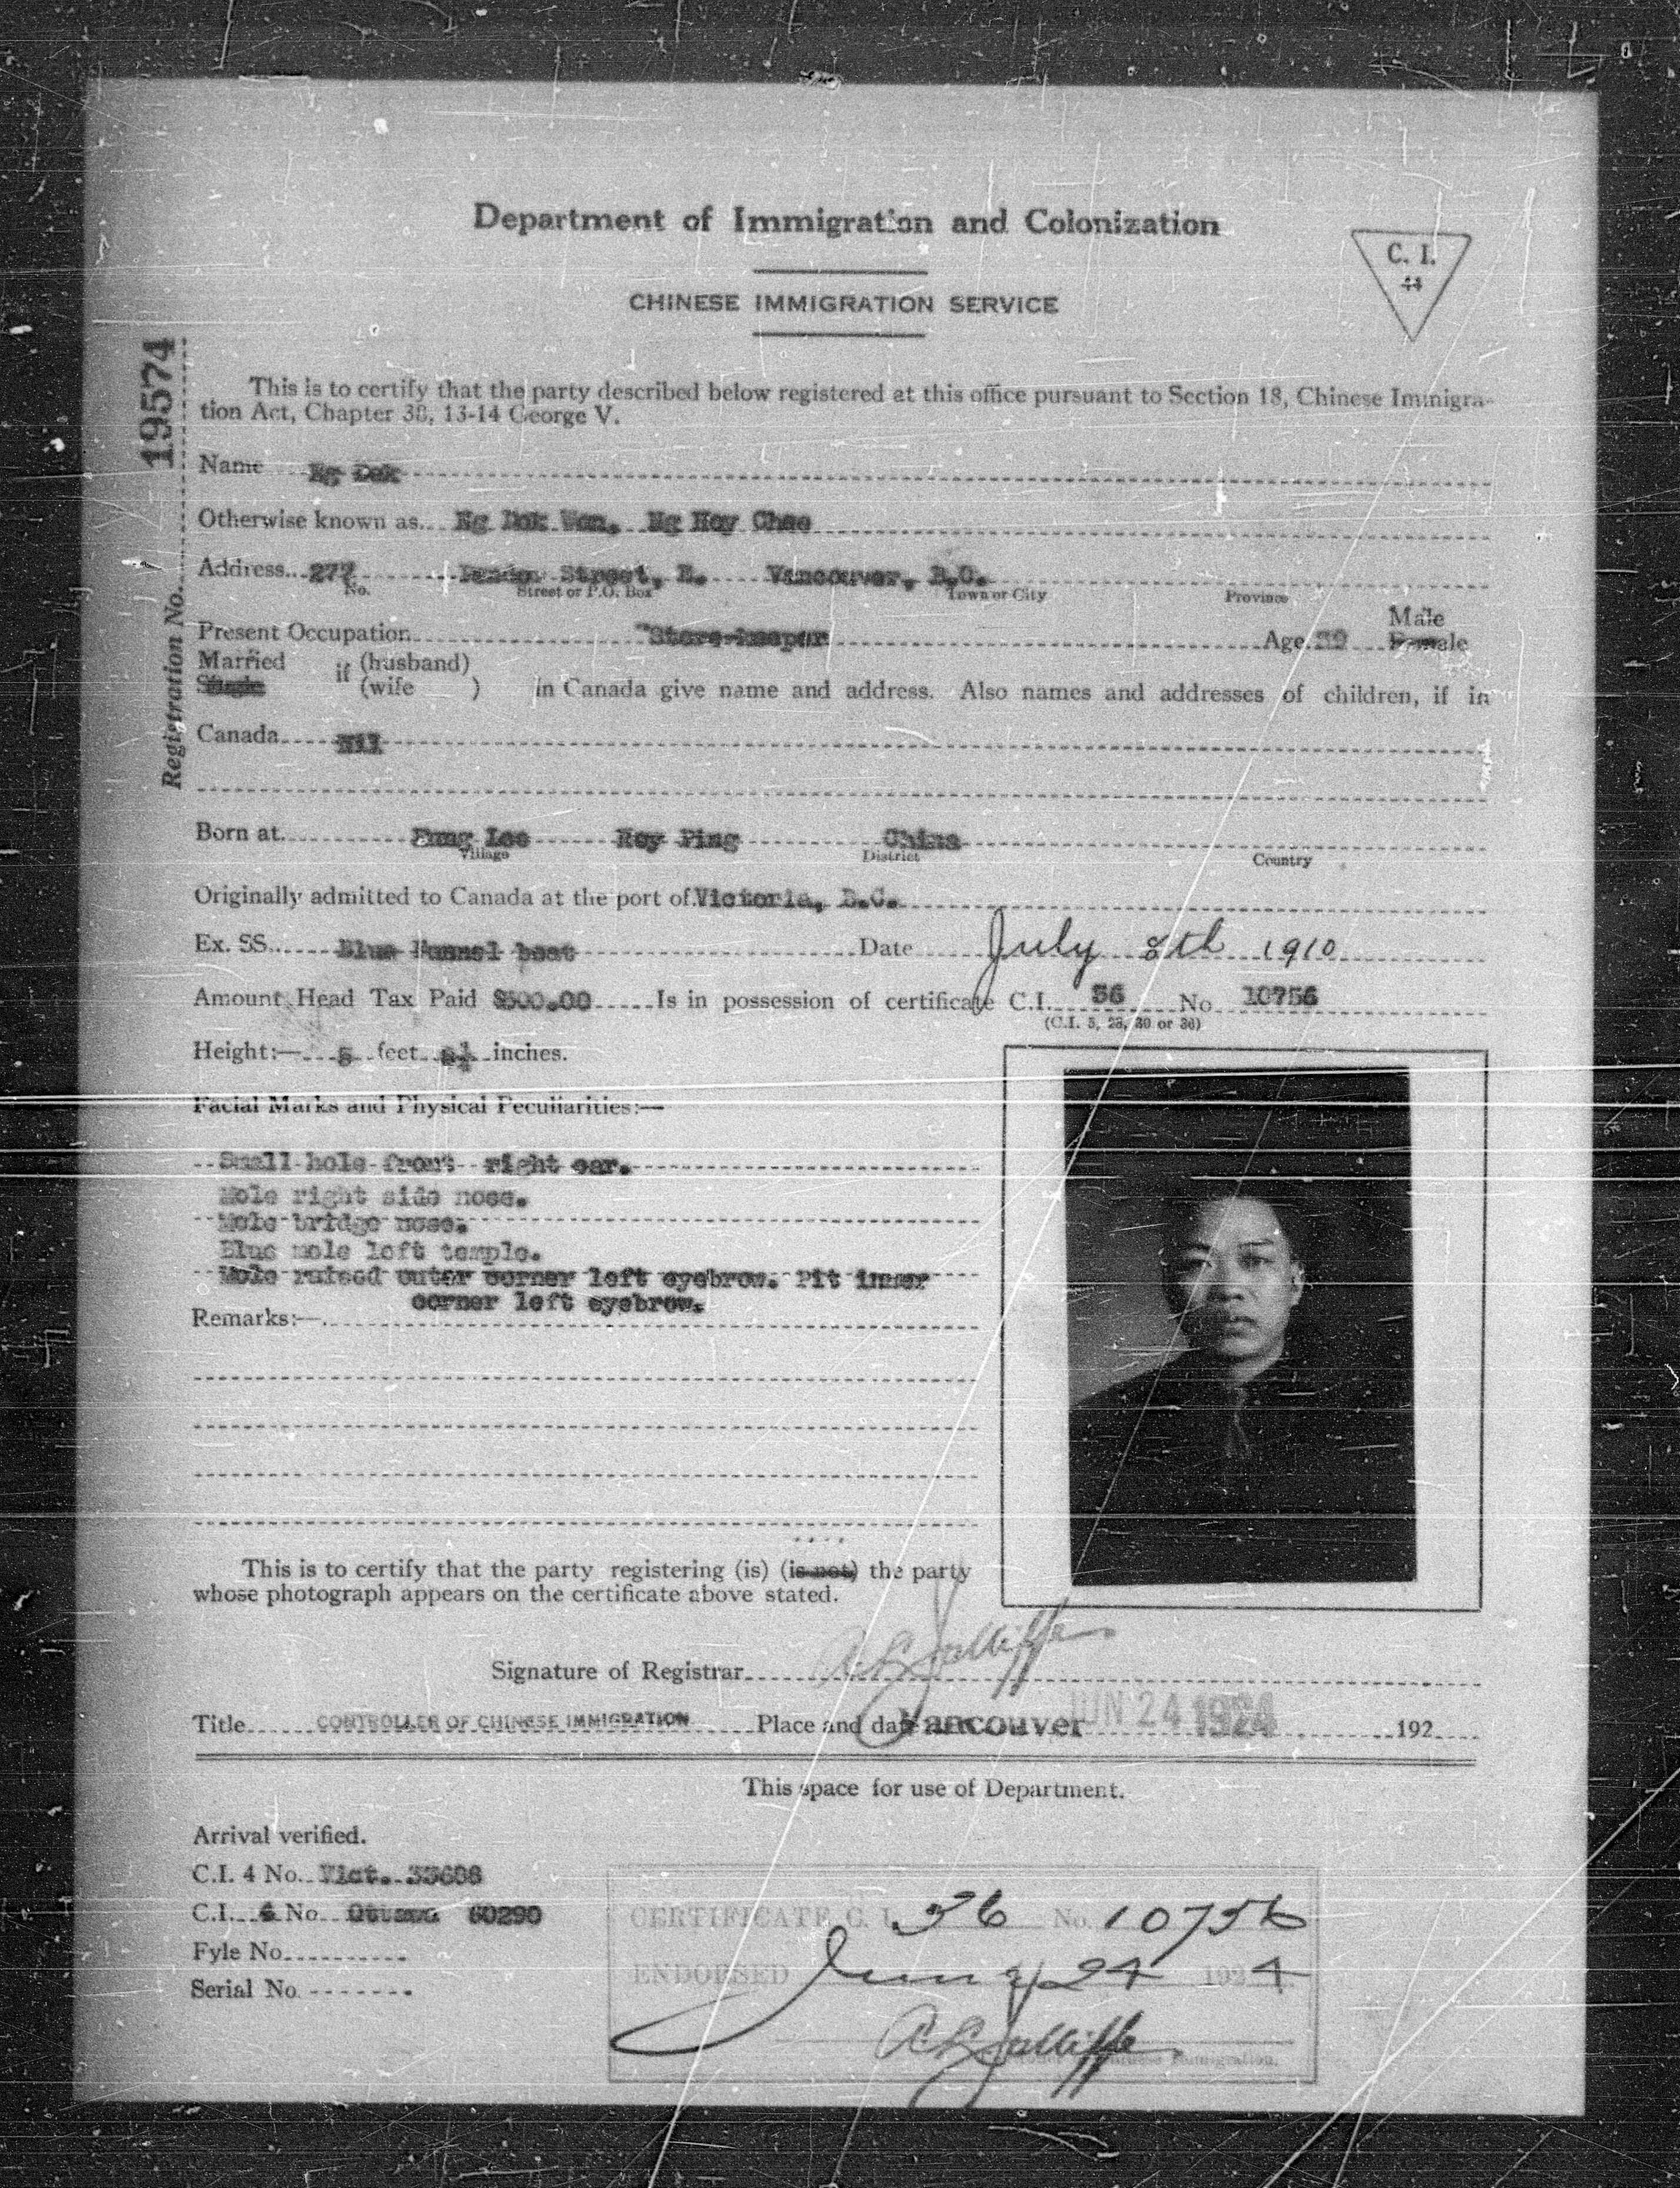 Department of Immigration and Colonization
CHINESE IMMIGRATION SERVICE
C. I.
44
Registration No. 19574
This is to certify that the party described below registered at this office pursuant to Section 18, Chinese Immigra-
tion Act, Chapter 38, 13-14 George V.
Name Ng Dok
Otherwise known as Ng Dok Won. Ng Hoy Chee
Address 277 Street, E. Vancouver, B.C.
No. Street or P.O. Box Town or City Province
Male
Present Occupation Store-keeper Age 39 Female
Married if (husband)
Single (wife ) in Canada give name and address. Also names and addresses of children, if in
Canada Nil
Born at Fung Lee Hoy Ping China
Village District Country
Originally admitted to Canada at the port of Victoria, B.C.
Ex. SS. Blue Funnel boat Date July 8th 1910
Amount Head Tax Paid $500.00 Is in possession of certificate C.I. 36 No 10756
(C.I. 5, 28, 30 or 36)
Height:— 5 feet inches.
Facial Marks and Physical Peculiarities:—
Small hole front right ear.
Mole right side nose.
Mole bridge nose.
Blue mole left temple.
Mole raised outer corner left eyebrow. Pit inner
corner left eyebrow.
Remarks:—
This is to certify that the party registering (is) (is not) the party
whose photograph appears on the certificate above stated.
Signature of Registrar A L Jolliffe
Title CONTROLLER OF CHINESE IMMIGRATION Place and date Vancouver JUN 24 1924 192
This space for use of Department.
Arrival verified.
C.I. 4 No. Vict. 33688
C.I. 4 No Ottawa 60290
Fyle No.
Serial No
CERTIFICATE C. I. 36 No. 10756
ENDORSED June 24 1924
A L Jolliffe
Chinese Immigration.